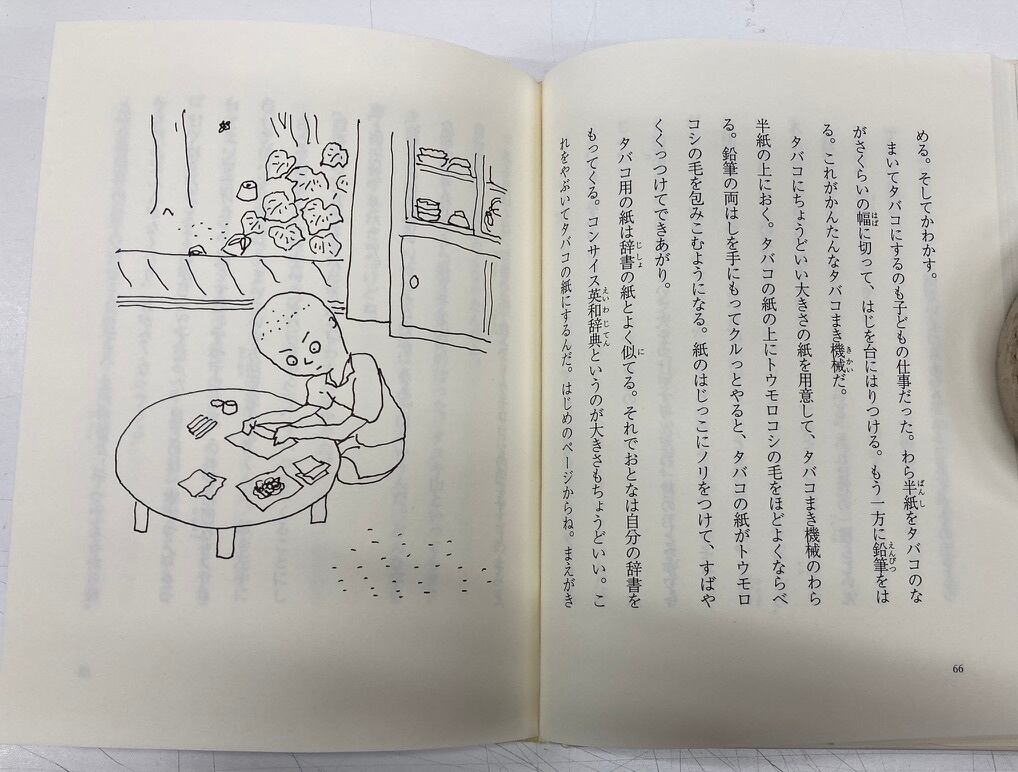 める。そしてかわかす。
まいてタバコにするのも子どもの仕事だった。わら半紙をタバコのな
がさくらいの幅に切って、はじを台にはりつける。もう一方に鉛筆をは
る。これがかんたんなタバコまき機械だ。
タバコにちょうどいい大きさの紙を用意して、タバコまき機械のわら
半紙の上におく。タバコの紙の上にトウモロコシの毛をほどよくならべ
る。鉛筆の両はしを手にもってクルっとやると、タバコの紙がトウモロ
コシの毛を包みこむようになる。紙のはじっこにノリをつけて、すばや
くくっつけてできあがり。
タバコ用の紙は辞書の紙とよく似てる。それでおとなは自分の辞書を
もってくる。コンサイス英和辞典というのが大きさもちょうどいい。こ
れをやぶいてタバコの紙にするんだ。はじめのページからね。まえがき
66